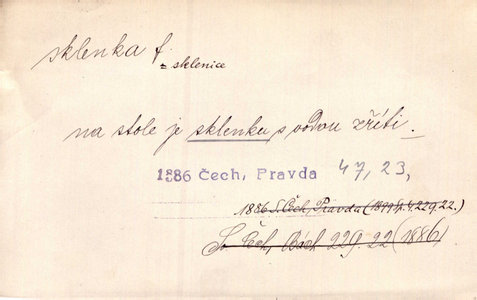 sklenka f.
= sklenice
na stole je sklenku s vodou zříti.
1886 Čech, Pravda 47, 23,
1886 S. Čech, Pravda (1899 229. 22.)
Sv. Čech, 229. 22 (1886)